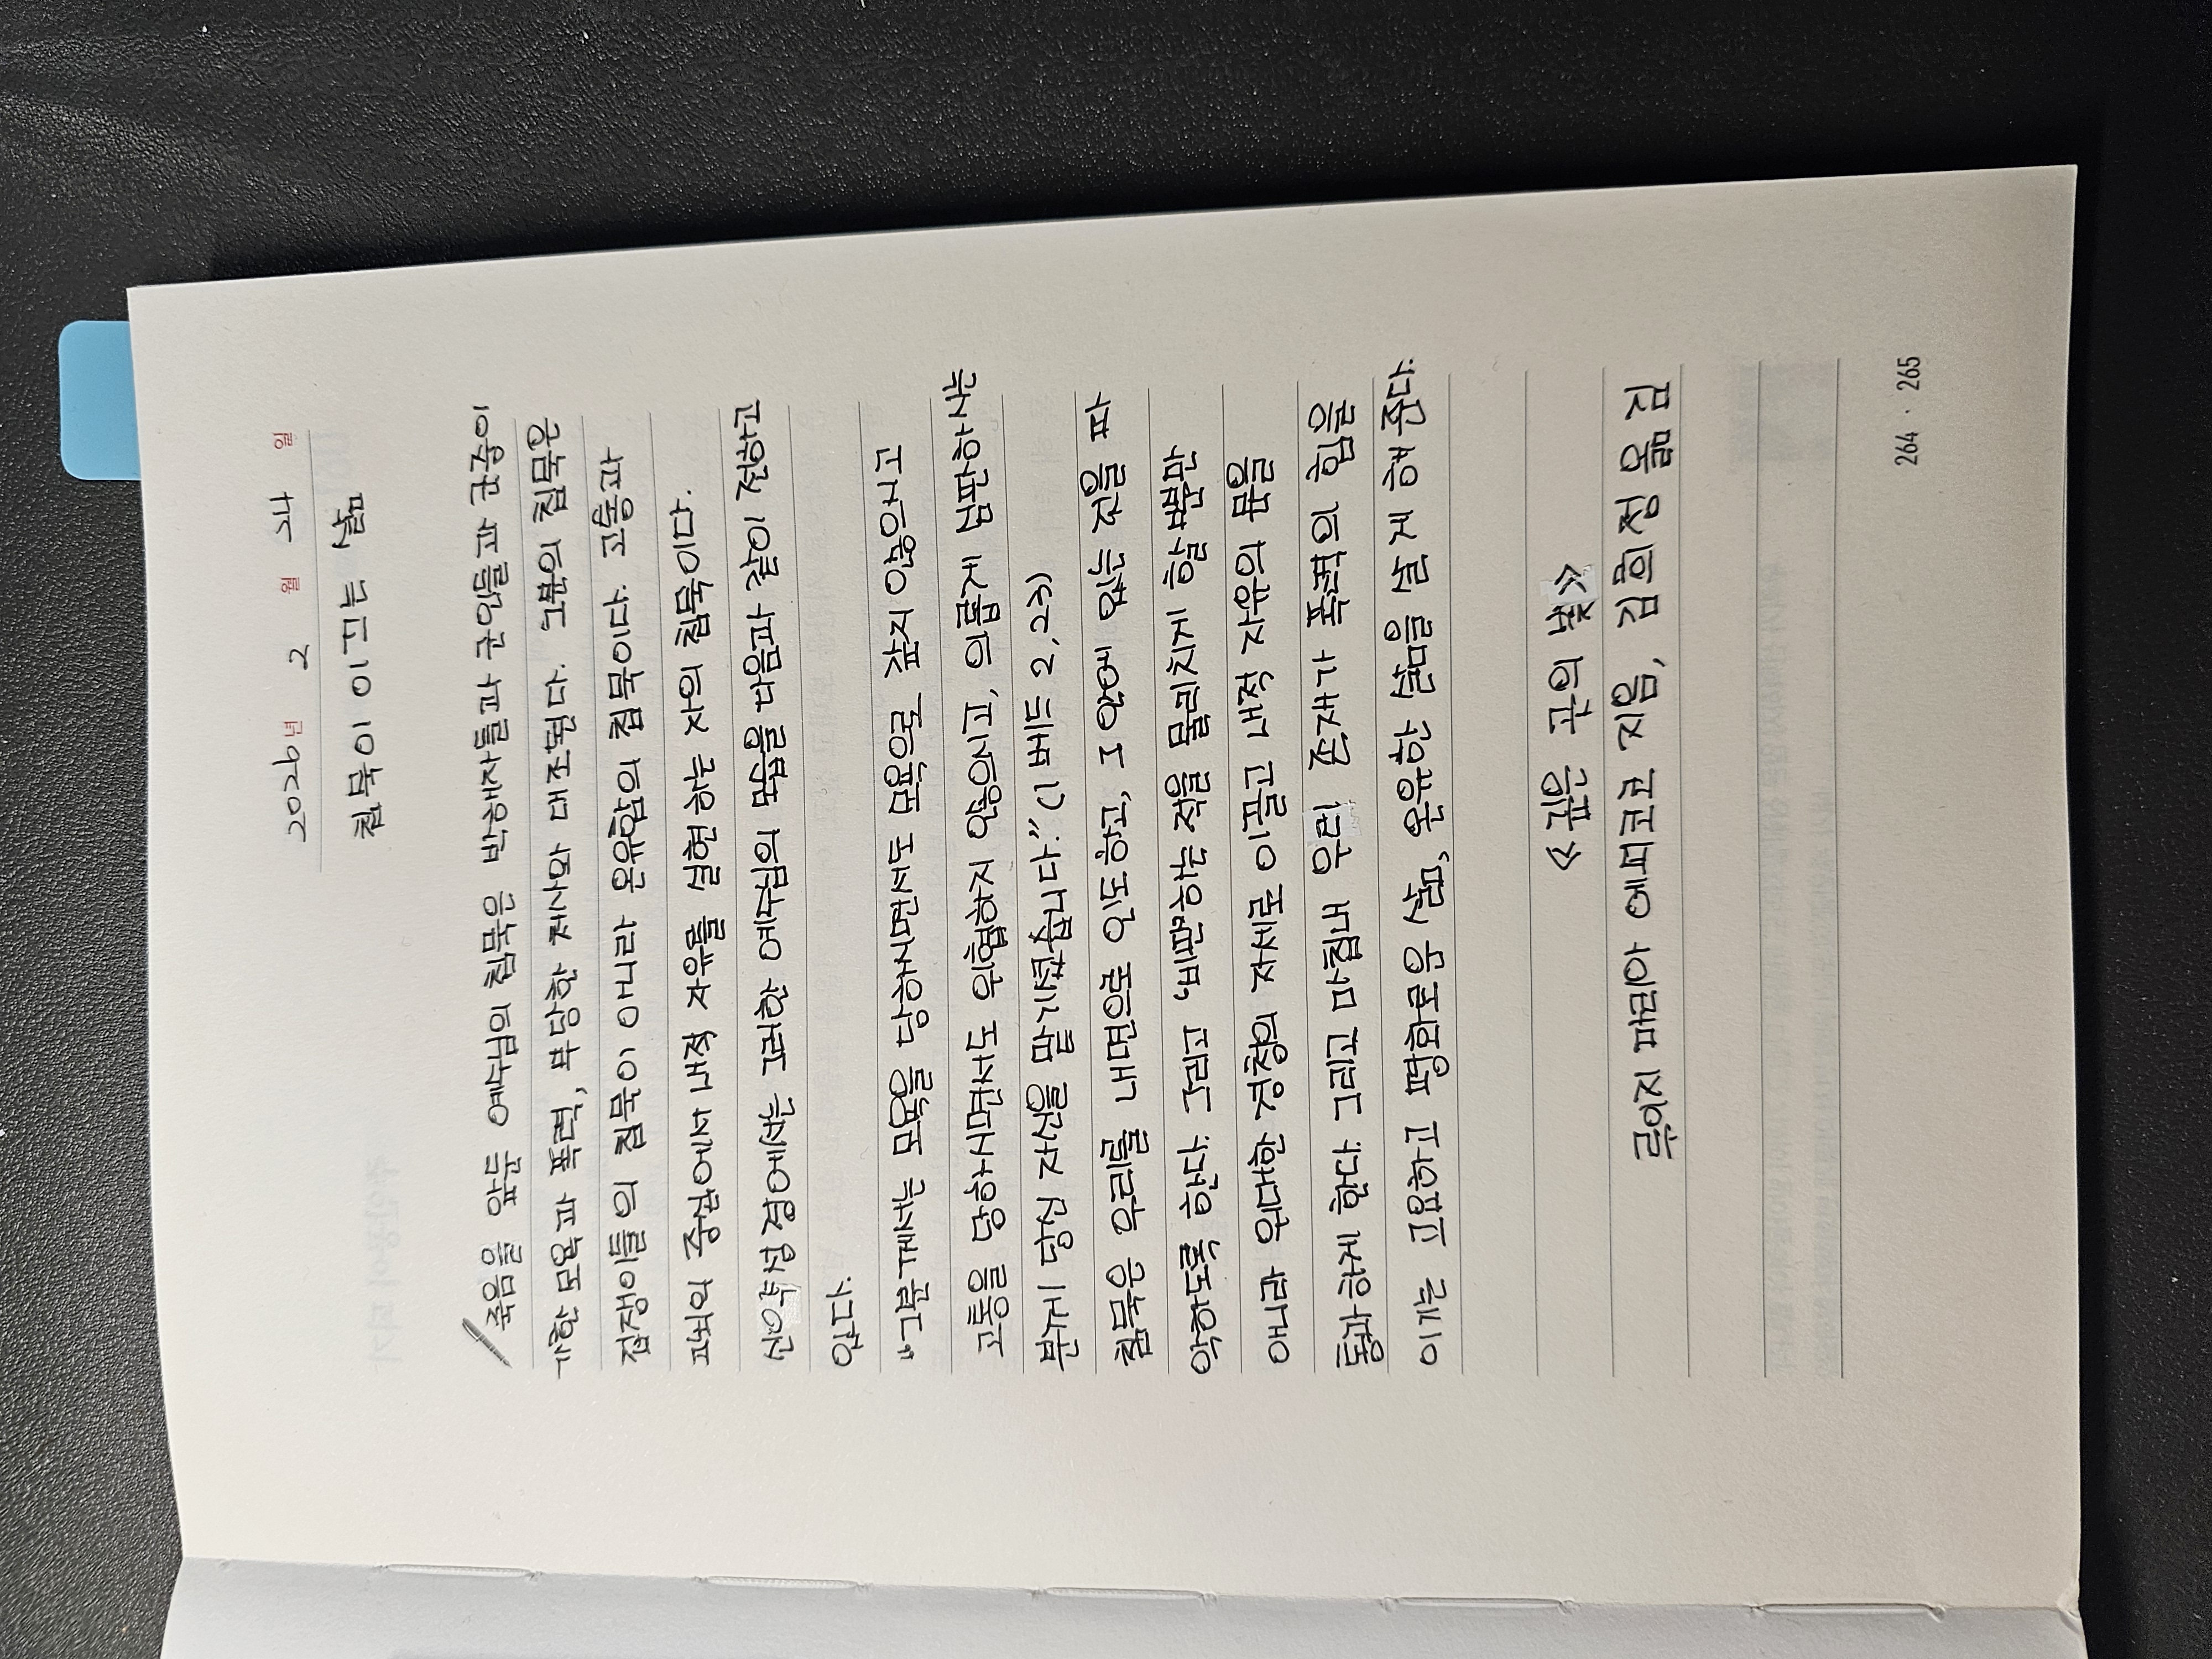 2026년 2 월 24 일
침묵이 이끄는 삶
죽음을 앞둔 예수님의 침묵은 박해자들과 군인들과 군중이
가한 모욕과 폭력, 부당한 처사와 대조된다. 그분의 침묵은
겁쟁이들의 침묵이 아니라 온유함의 침묵이다. 고통과
파괴의 중심에서 내적 자유를 실현하는 자의 침묵이다.
신약성경에서는 그러한 예수님의 모습을 다음과 같이 전하고
있다.
"그분께서는 모욕을 당하시면서도 모욕으로 갚지 않으시고
고통을 당하시면서도 위협하지 않으시고, 의롭게 심판하시는
분께 당신 자신을 맡기셨습니다." (1 베드 2,23)
침묵은 우리를 내면으로 인도하고, 그 안에 있는 것을 파
악하도록 한다. 그리고 '비판하는 적을 물리치게 할 뿐만
아니라 위대한 경청의 자세로 이끌고 내적 자유의 문을
통과하게 한다. 그리고 마침내 우리 존재가 폭력의 힘을
이기는 고요하고 평화로운 삶, 온유한 삶을 살게 해 준다.
《 깊은 곳의 빛》
루이지 마리아 에피코코 지음, 김희정 옮김
264 · 265